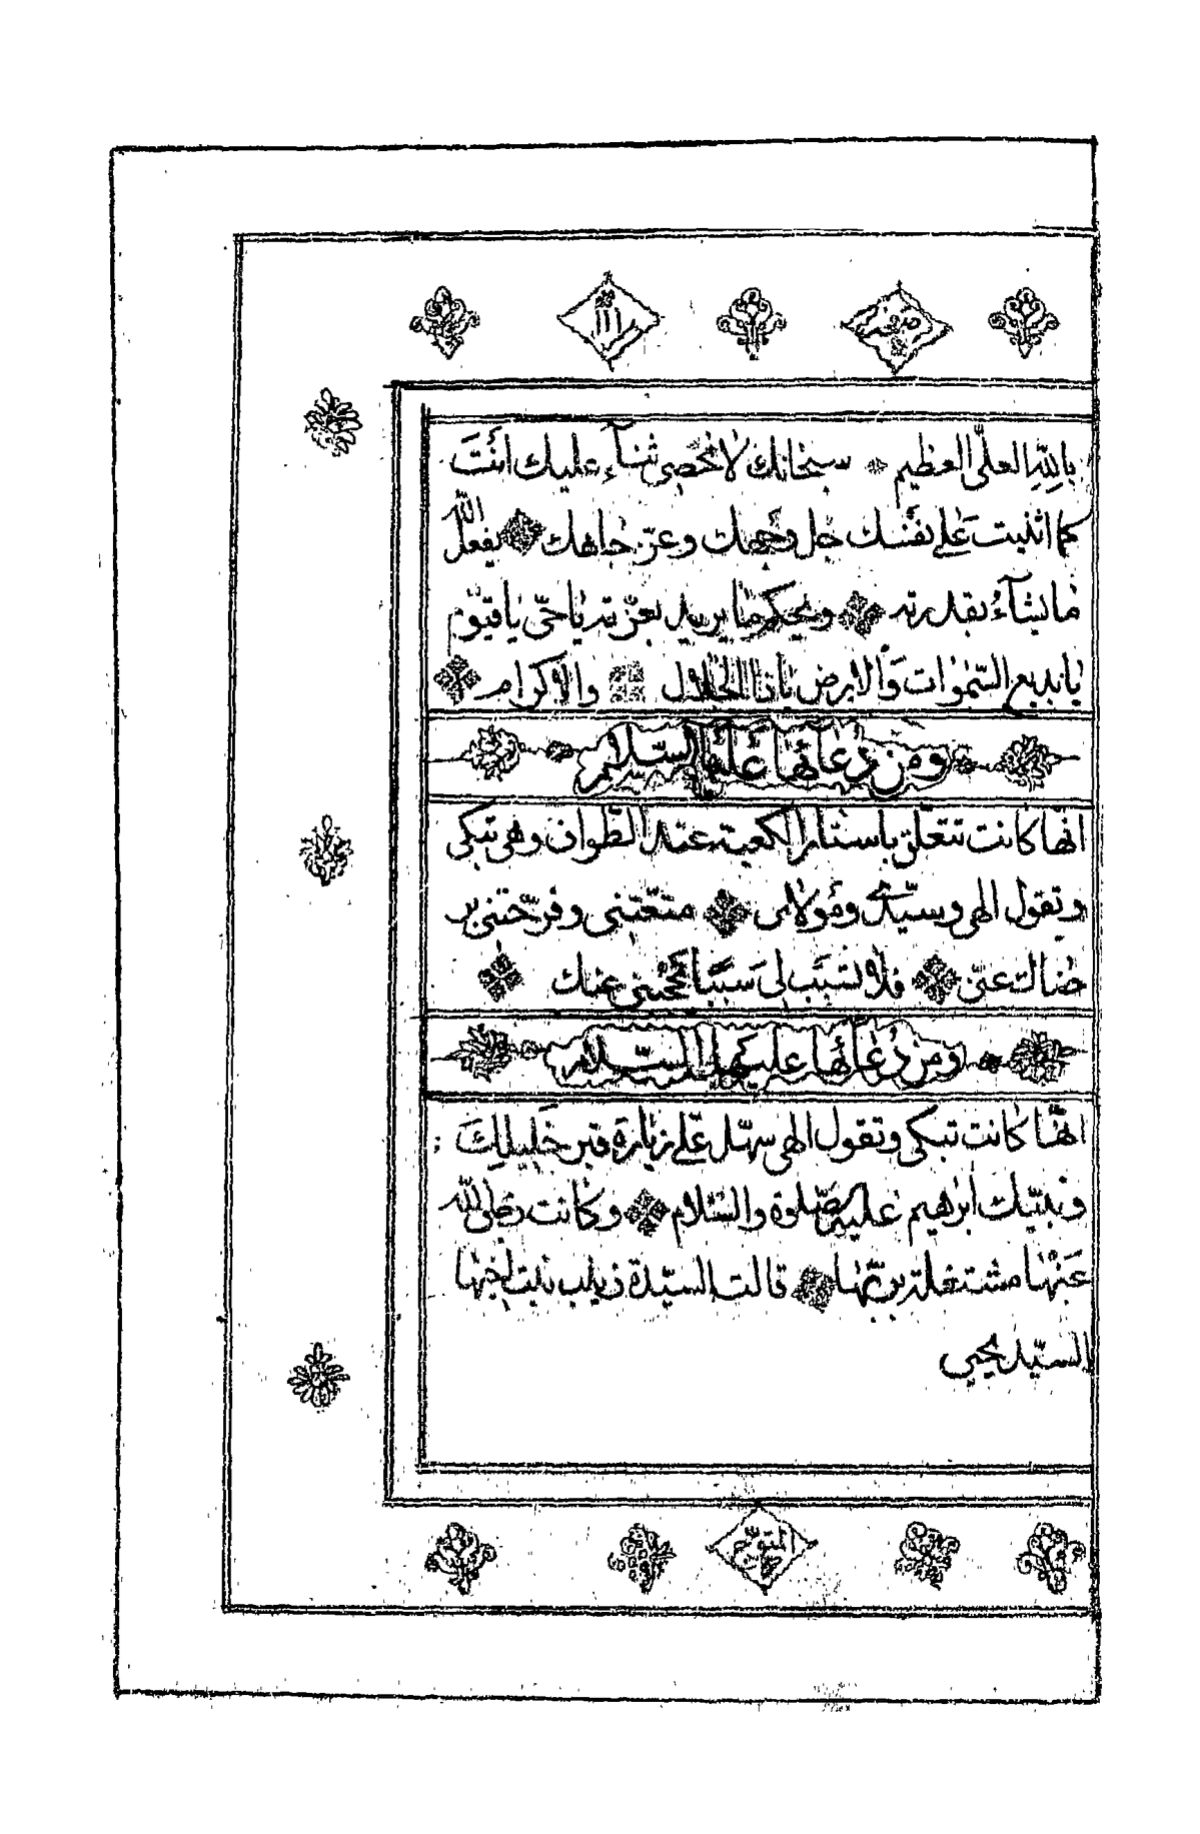 صفحة
١١١
بِاللّٰهِ العلىّ العظيم سبحانك لا نحصى ثناء عليك أنتَ
كما اثنيت عَلى نفسك جل وجهك وعزّ جاهك يفعل الله
ما يشآءُ بقدرته ويحكم ما يريد بعزّته يا حىّ يا قيّوم
يا بديع السّمٰوات وَالارض ياذا الجلال والاكرام
ومن دُعآئها عليها السّلام
انّها كانت تتعلّق باستار الكعبة عند الطّواف وهى تبكى
وتقول الهى وسيّدى ومولاى متعّتنى وفرّحتنى بر
ضاك عنّى فلا تسبّب لى سَببًا يحجبنى عنك
ومن دُعائها عليها السّلام
انّها كانت تبكى وتقول الهى سهّل عَلى زيارة قبر خَليلِكَ
ونبيّك ابرهيم عليه الصّلوة والسّلام وكانت رضى الله
عَنْها مشتغلة بربّها قالت السيّدة زينب بنت اخيها
السيّد يحيى
المتوّج